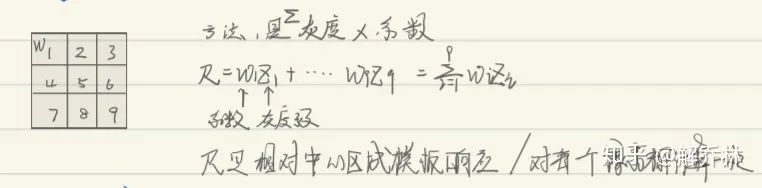 W1 2 3
4 5 6
7 8 9
方法,是Σ灰度×系数
R=W1Z1+····W9Z9=Σ WiZi
i=1
系数 灰度级
R是相对中心区域模板响应/对每个
知乎 @解乔林